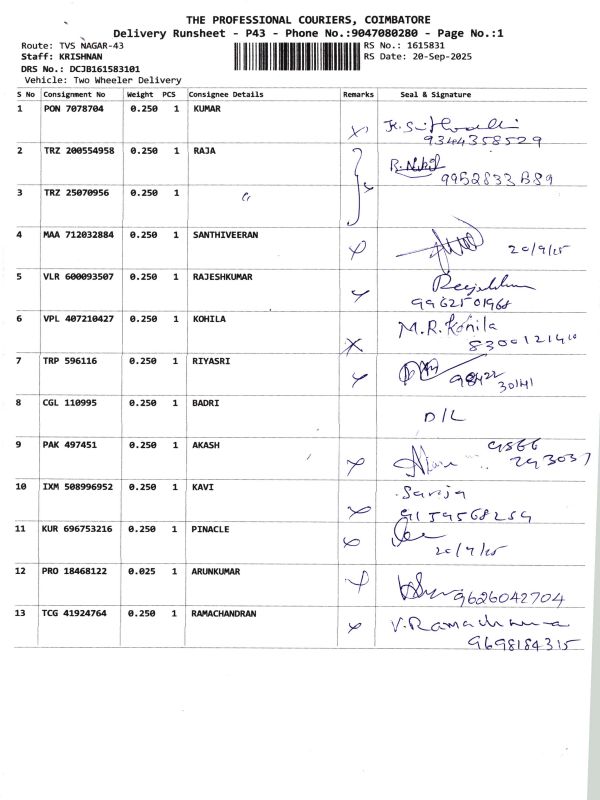 THE PROFESSIONAL COURIERS, COIMBATORE
Delivery Runsheet - P43 - Phone No.:9047080280 - Page No.:1
Route: TVS NAGAR-43 RS No.: 1615831
Staff: KRISHNAN RS Date: 20-Sep-2025
DRS No.: DCJB161583101
Vehicle: Two Wheeler Delivery
S No Consignment No Weight PCS Consignee Details Remarks Seal & Signature
1 PON 7078704 0.250 1 KUMAR
9344358529
2 TRZ 200554958 0.250 1 RAJA
3 TRZ 25070956 0.250 1 "
4 MAA 712032884 0.250 1 SANTHIVEERAN 20/9/25
5 VLR 600093507 0.250 1 RAJESHKUMAR
6 VPL 407210427 0.250 1 KOHILA M.R. Kohila
7 TRP 596116 0.250 1 RIYASRI 98422
30141
8 CGL 110995 0.250 1 BADRI D/L
9 PAK 497451 0.250 1 AKASH 9566
293037
10 IXM 508996952 0.250 1 KAVI
9159568259
11 KUR 696753216 0.250 1 PINACLE
20/9/25
12 PRO 18468122 0.025 1 ARUNKUMAR
9626042704
13 TCG 41924764 0.250 1 RAMACHANDRAN V. Ramachandran
9698184315